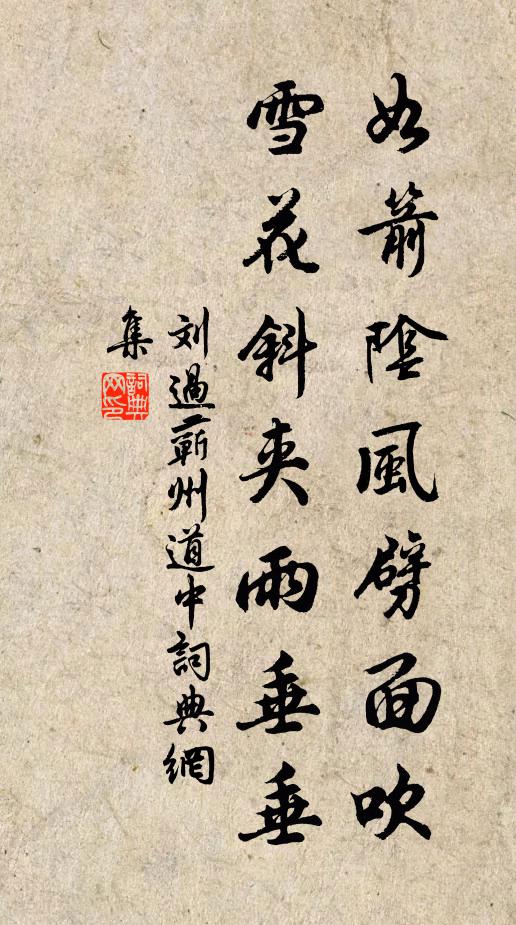 如箭陰風劈面吹
雪花斜夹雨垂垂
刘過蕲州道中詞典網
集
詞典
网印